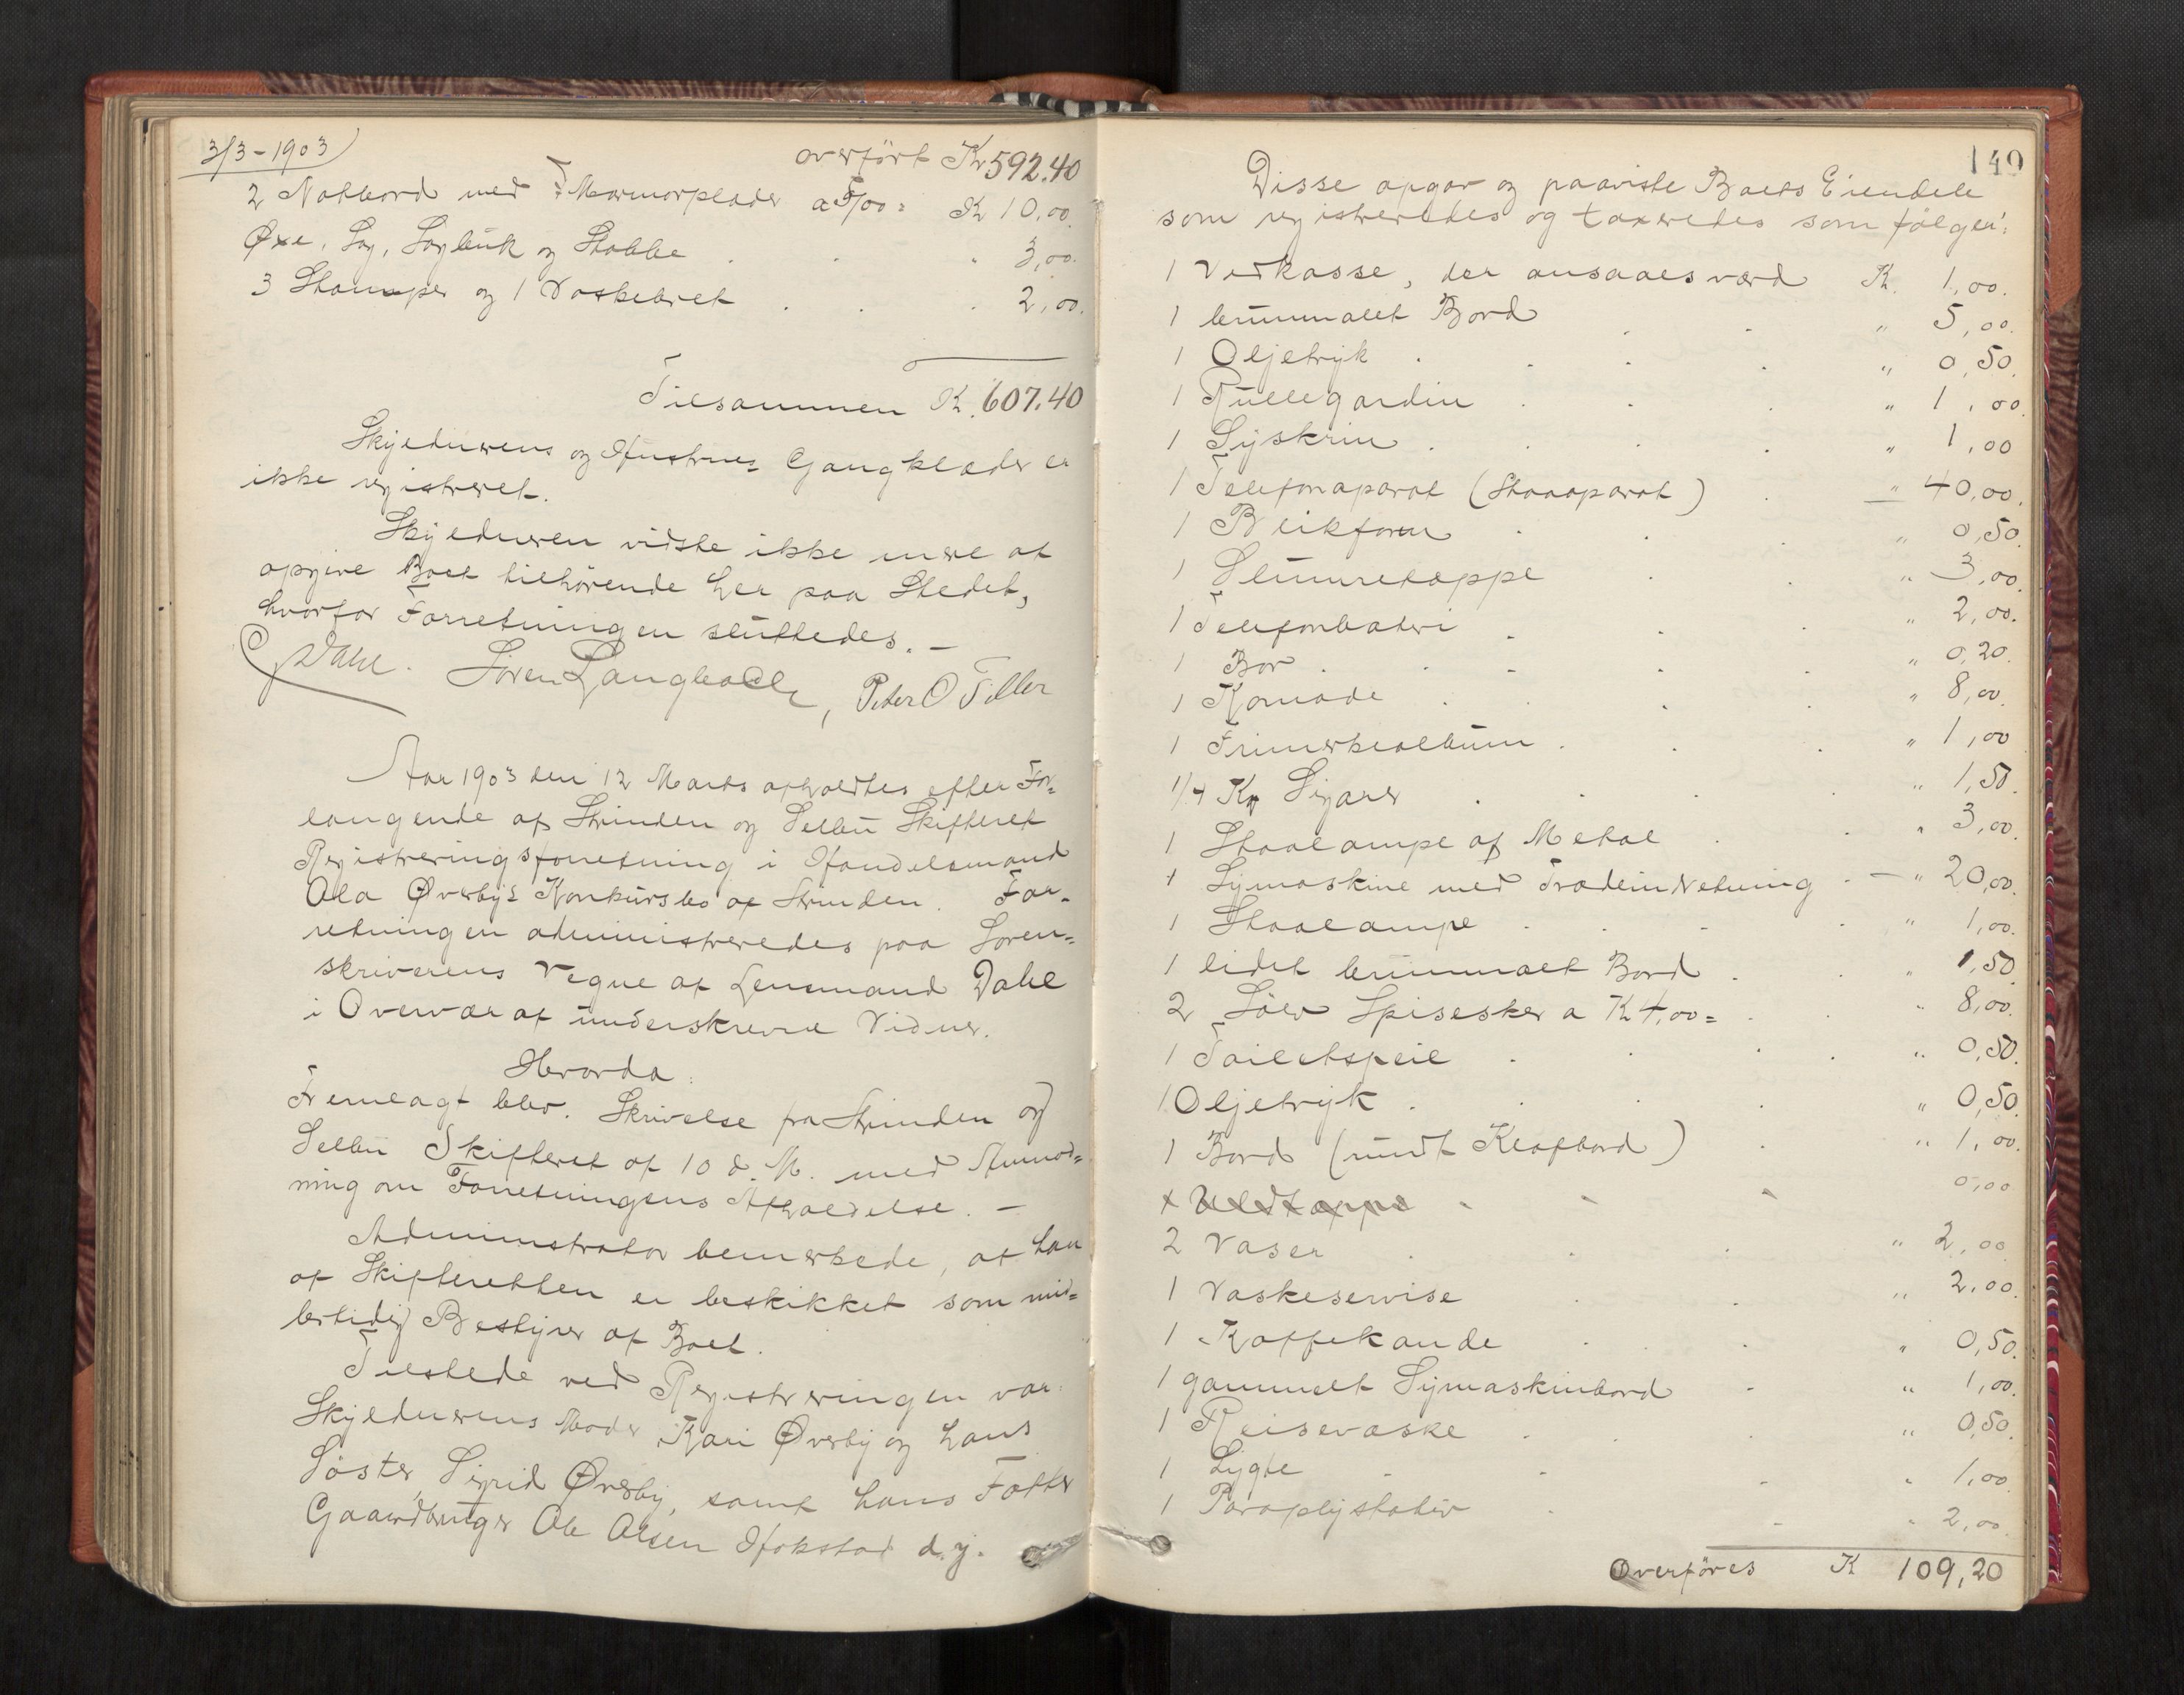 3/3-1903
overført Kr 592.40
2 Natbord med Marmorplader a 5/00 = Kr 10,00.
Øxe, Sag, Sagbuk og Stabbe . . . 3,00.
3 Stamper og 1 Vaskebret . . . 2,00.
Tilsammen K. 607.40
Skyldnerens og Hustrues Gangklæder er
ikke registreret.
Skyldneren vidste ikke mere at
opgive Boet tilhørende her paa Stedet,
hvorfor Forretningen sluttedes. -
Dahl. Søren Langbackk, Peter O Tiller
Aar 1903 den 12 Marts afholdtes efter For-
langende af Strinden og Selbu Skifteret
Registreringsforretning i Handelsmand
Ola Øverby's Konkursbo af Strinden. For-
retningen administreredes paa Soren-
skriverens Vegne af Lensmand Dahl
i Overvær af underskrevne Vidner.
Hvorda:
Fremlagt blev. Skrivelse fra Strinden og
Selbu Skifteret af 10 d. M. med Anmod-
ning om Forretningens Afholdelse. -
Administrator bemerkede, at han
af Skifteretten er beskikket som mid-
lertidig Bestyrer af Boet.
Tilstede ved Registreringen var:
Skyldnerens Moder Kari Øverby og hans
Søster, Sigrid Øverby, samt hans Fætter
Gaardbruger Ole Olsen Hokstad d.y.
149
Disse opgav og paaviste Boets Eiendele
som registreredes og taxeredes som følger:
1 Vedkasse, der ansaaes værd K. 1,00.
1 brunmalet Bord . . " 5,00.
1 Oljetryk . . . " 0,50.
1 Rullegardin . . . " 1,00.
1 Syskrin . . . " 1,00
1 Telefonaparat (Staaaparat) . " 40,00.
1 Blikform . . . " 0,50.
1 Slumretæppe . . " 3,00.
1 Telefonbatteri . . . " 2,00.
1 Bor . . . . " 0,20.
1 Komode . . . . " 8,00.
1 Frimerkealbum . . . " 1,00
1/4 Ks Sigarer . . . . " 1,50.
1 Staalampe af Metal . . " 3,00.
1 Symaskine med Trædeindretning . - " 20,00.
1 Staalampe . . . . " 1,00.
1 lidet brunmalt Bord . . " 1,50
2 Sølv Spiseskeer a K 4,00 = . " 8,00.
1 Toiletspeil . . . . " 0,50.
1 Oljetryk . . . . " 0,50.
1 Bord (rundt Klafbord) . " 1,00.
0,00
2 Vaser . . . " 2,00
1 Vaskeservise . . " 2,00.
1 Kaffekande . . . " 0,50.
1 gammelt Symaskinbord . " 1,00.
1 Reisevæske . . . " 0,50.
1 Lygte . . . " 1,00.
1 Paraplystativ . . " 2,00.
Overføres K 109,20